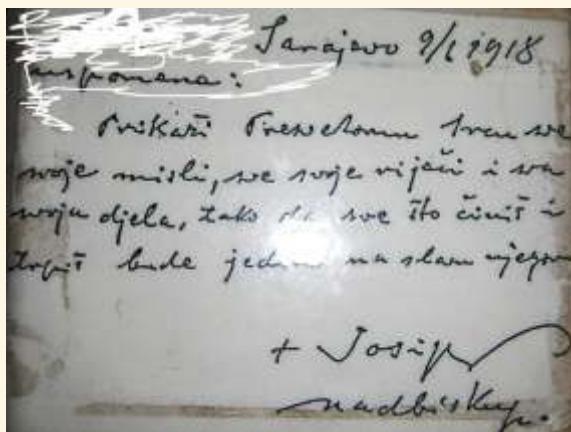 Sarajevo 9/I 1918
uspomena:
Prikaži Presvetomu Srcu sve
svoje misli, sve svoje riječi i sva
svoja djela, tako da sve što činiš i
trpiš bude jedino na slavu njegovu
+ Josip
nadbiskup.